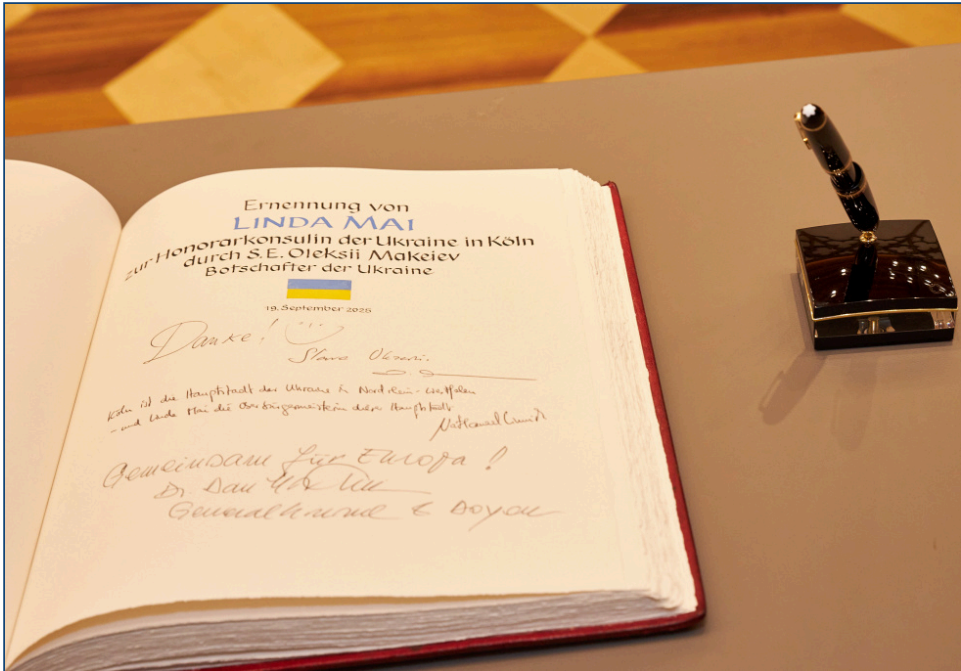 Ernennung von
LINDA MAI
zur Honorarkonsulin der Ukraine in Köln
durch S.E. Oleksii Makeiev
Botschafter der Ukraine
19. September 2025
Danke!
Slava Ukraini.
Köln ist die Hauptstadt der Ukraine in Nordrhein-Westfalen
- und Linda Mai die Oberbürgermeisterin dieser Hauptstadt
Nathanael
Gemeinsam für Europa!
Dr. Dan
Generalkonsul & Doyen